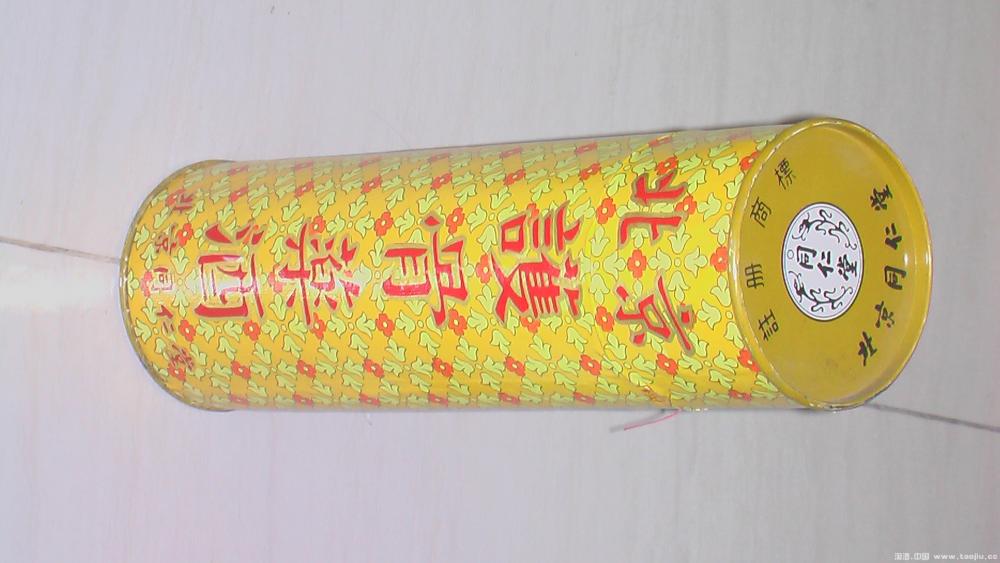 北京
護骨藥酒
北京同仁堂
註冊商標
同仁堂
北京同仁堂
淘酒.中国 www.taojiu.cc